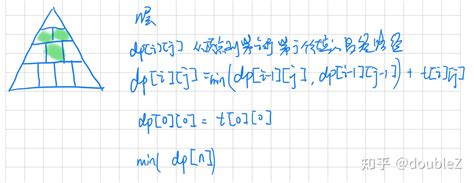 dp[i][j] 从顶到第i行第j个位置的最短路径
dp[i][j] = min(dp[i-1][j], dp[i-1][j-1]) + t[i][j]
dp[0][0] = t[0][0]
min( dp[n])
知乎 @doubleZ